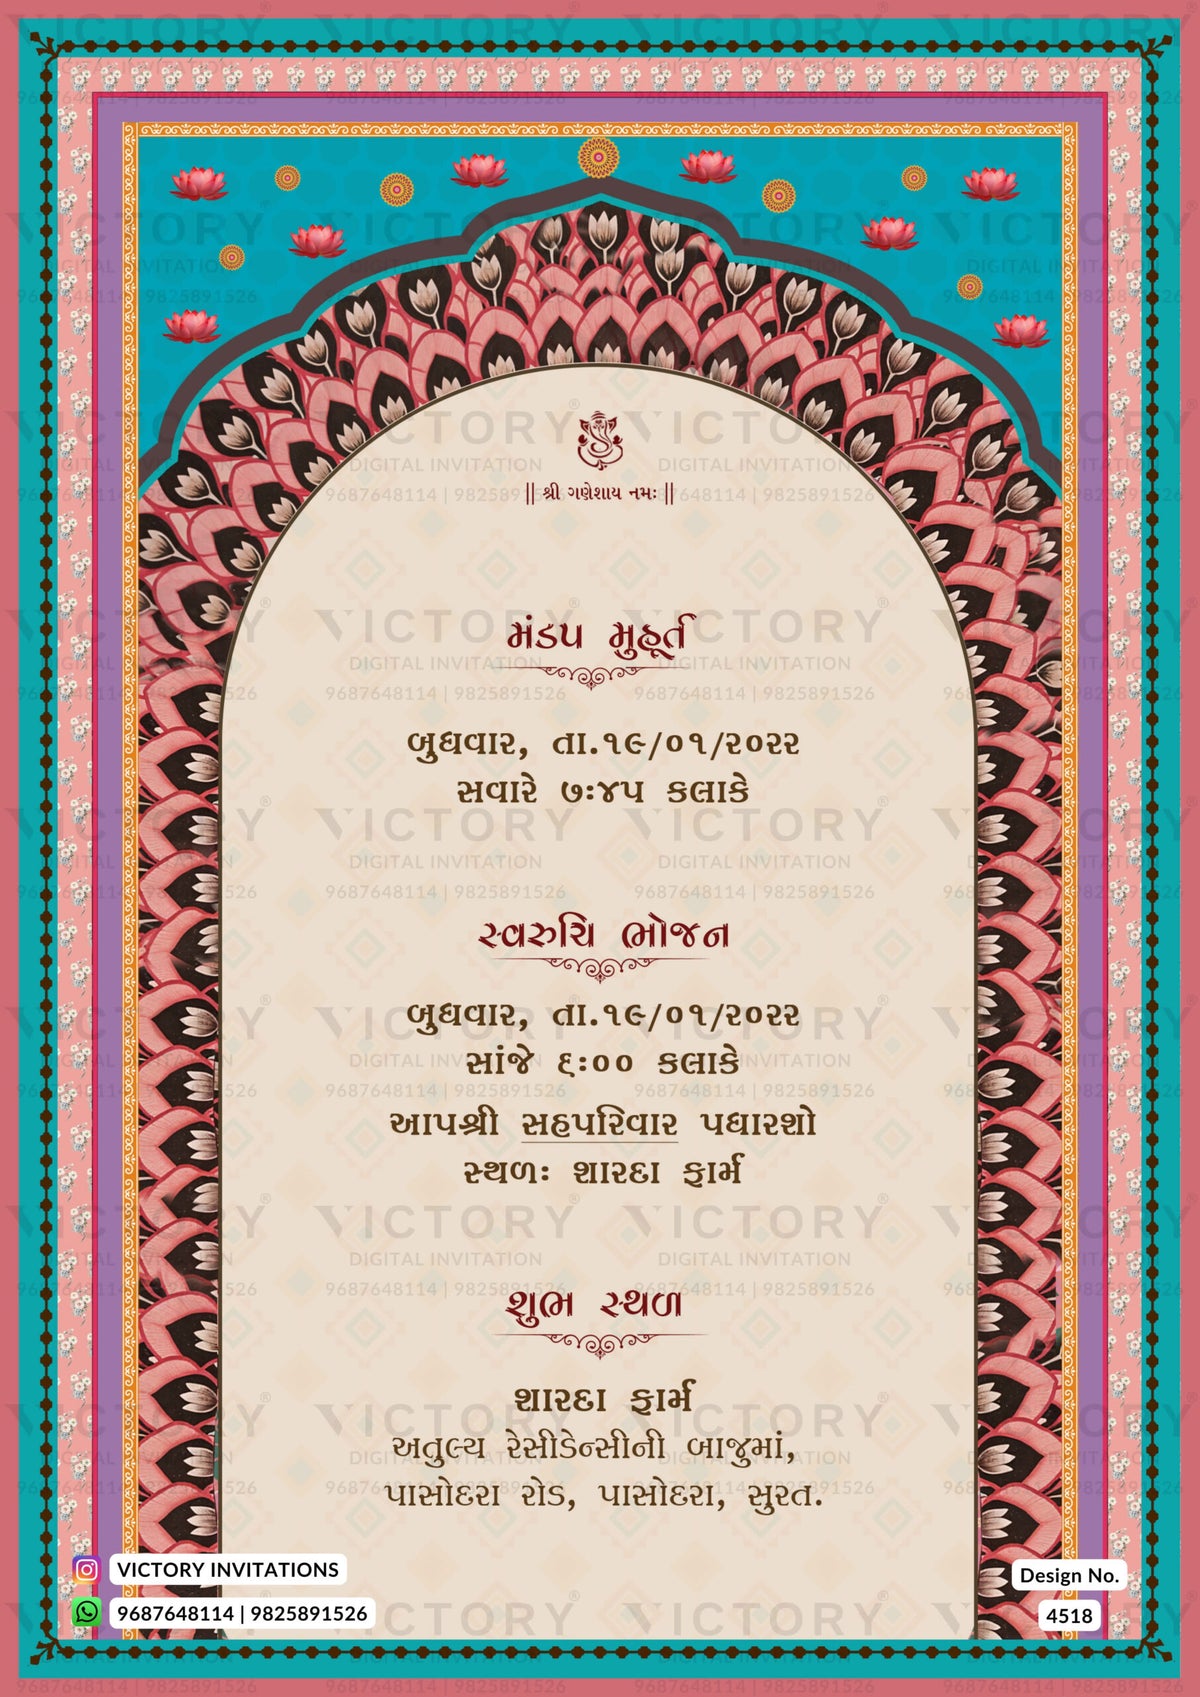 || શ્રી ગણેશાય નમઃ ||
મંડપ મુહૂર્ત
બુધવાર, તા.૧૯/૦૧/૨૦૨૨
સવારે ૭:૪૫ કલાકે
સ્વરુચિ ભોજન
બુધવાર, તા.૧૯/૦૧/૨૦૨૨
સાંજે ૬:૦૦ કલાકે
આપશ્રી સહપરિવાર પધારશો
સ્થળઃ શારદા ફાર્મ
શુભ સ્થળ
શારદા ફાર્મ
અતુલ્ય રેસીડેન્સીની બાજુમાં,
પાસોદરા રોડ, પાસોદરા, સુરત.
VICTORY INVITATIONS
9687648114 | 9825891526
Design No.
4518
VICTORY
DIGITAL INVITATION
9687648114 | 9825891526